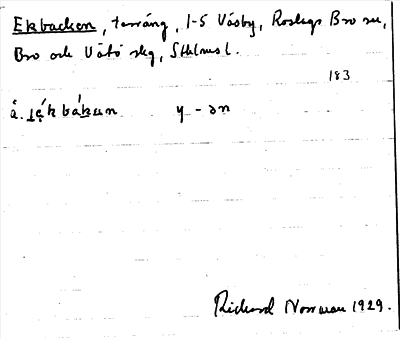 Ekbacken, terräng, 1-5 Väsby, Roslags Bro sn,
Bro och Vätö skg, Sthlms l.
183
å. i̯ẹ́kbàkun y - ən
Richard Norrman 1929.